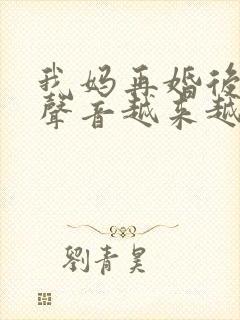 我妈再婚後
聲音越来越
劉青昊